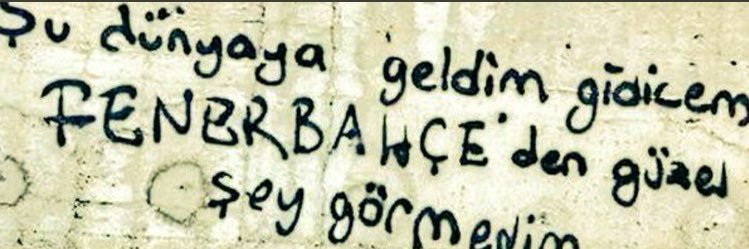 Şu dünyaya geldim gidicem
FENERBAHÇE'den güzel
şey görmedim